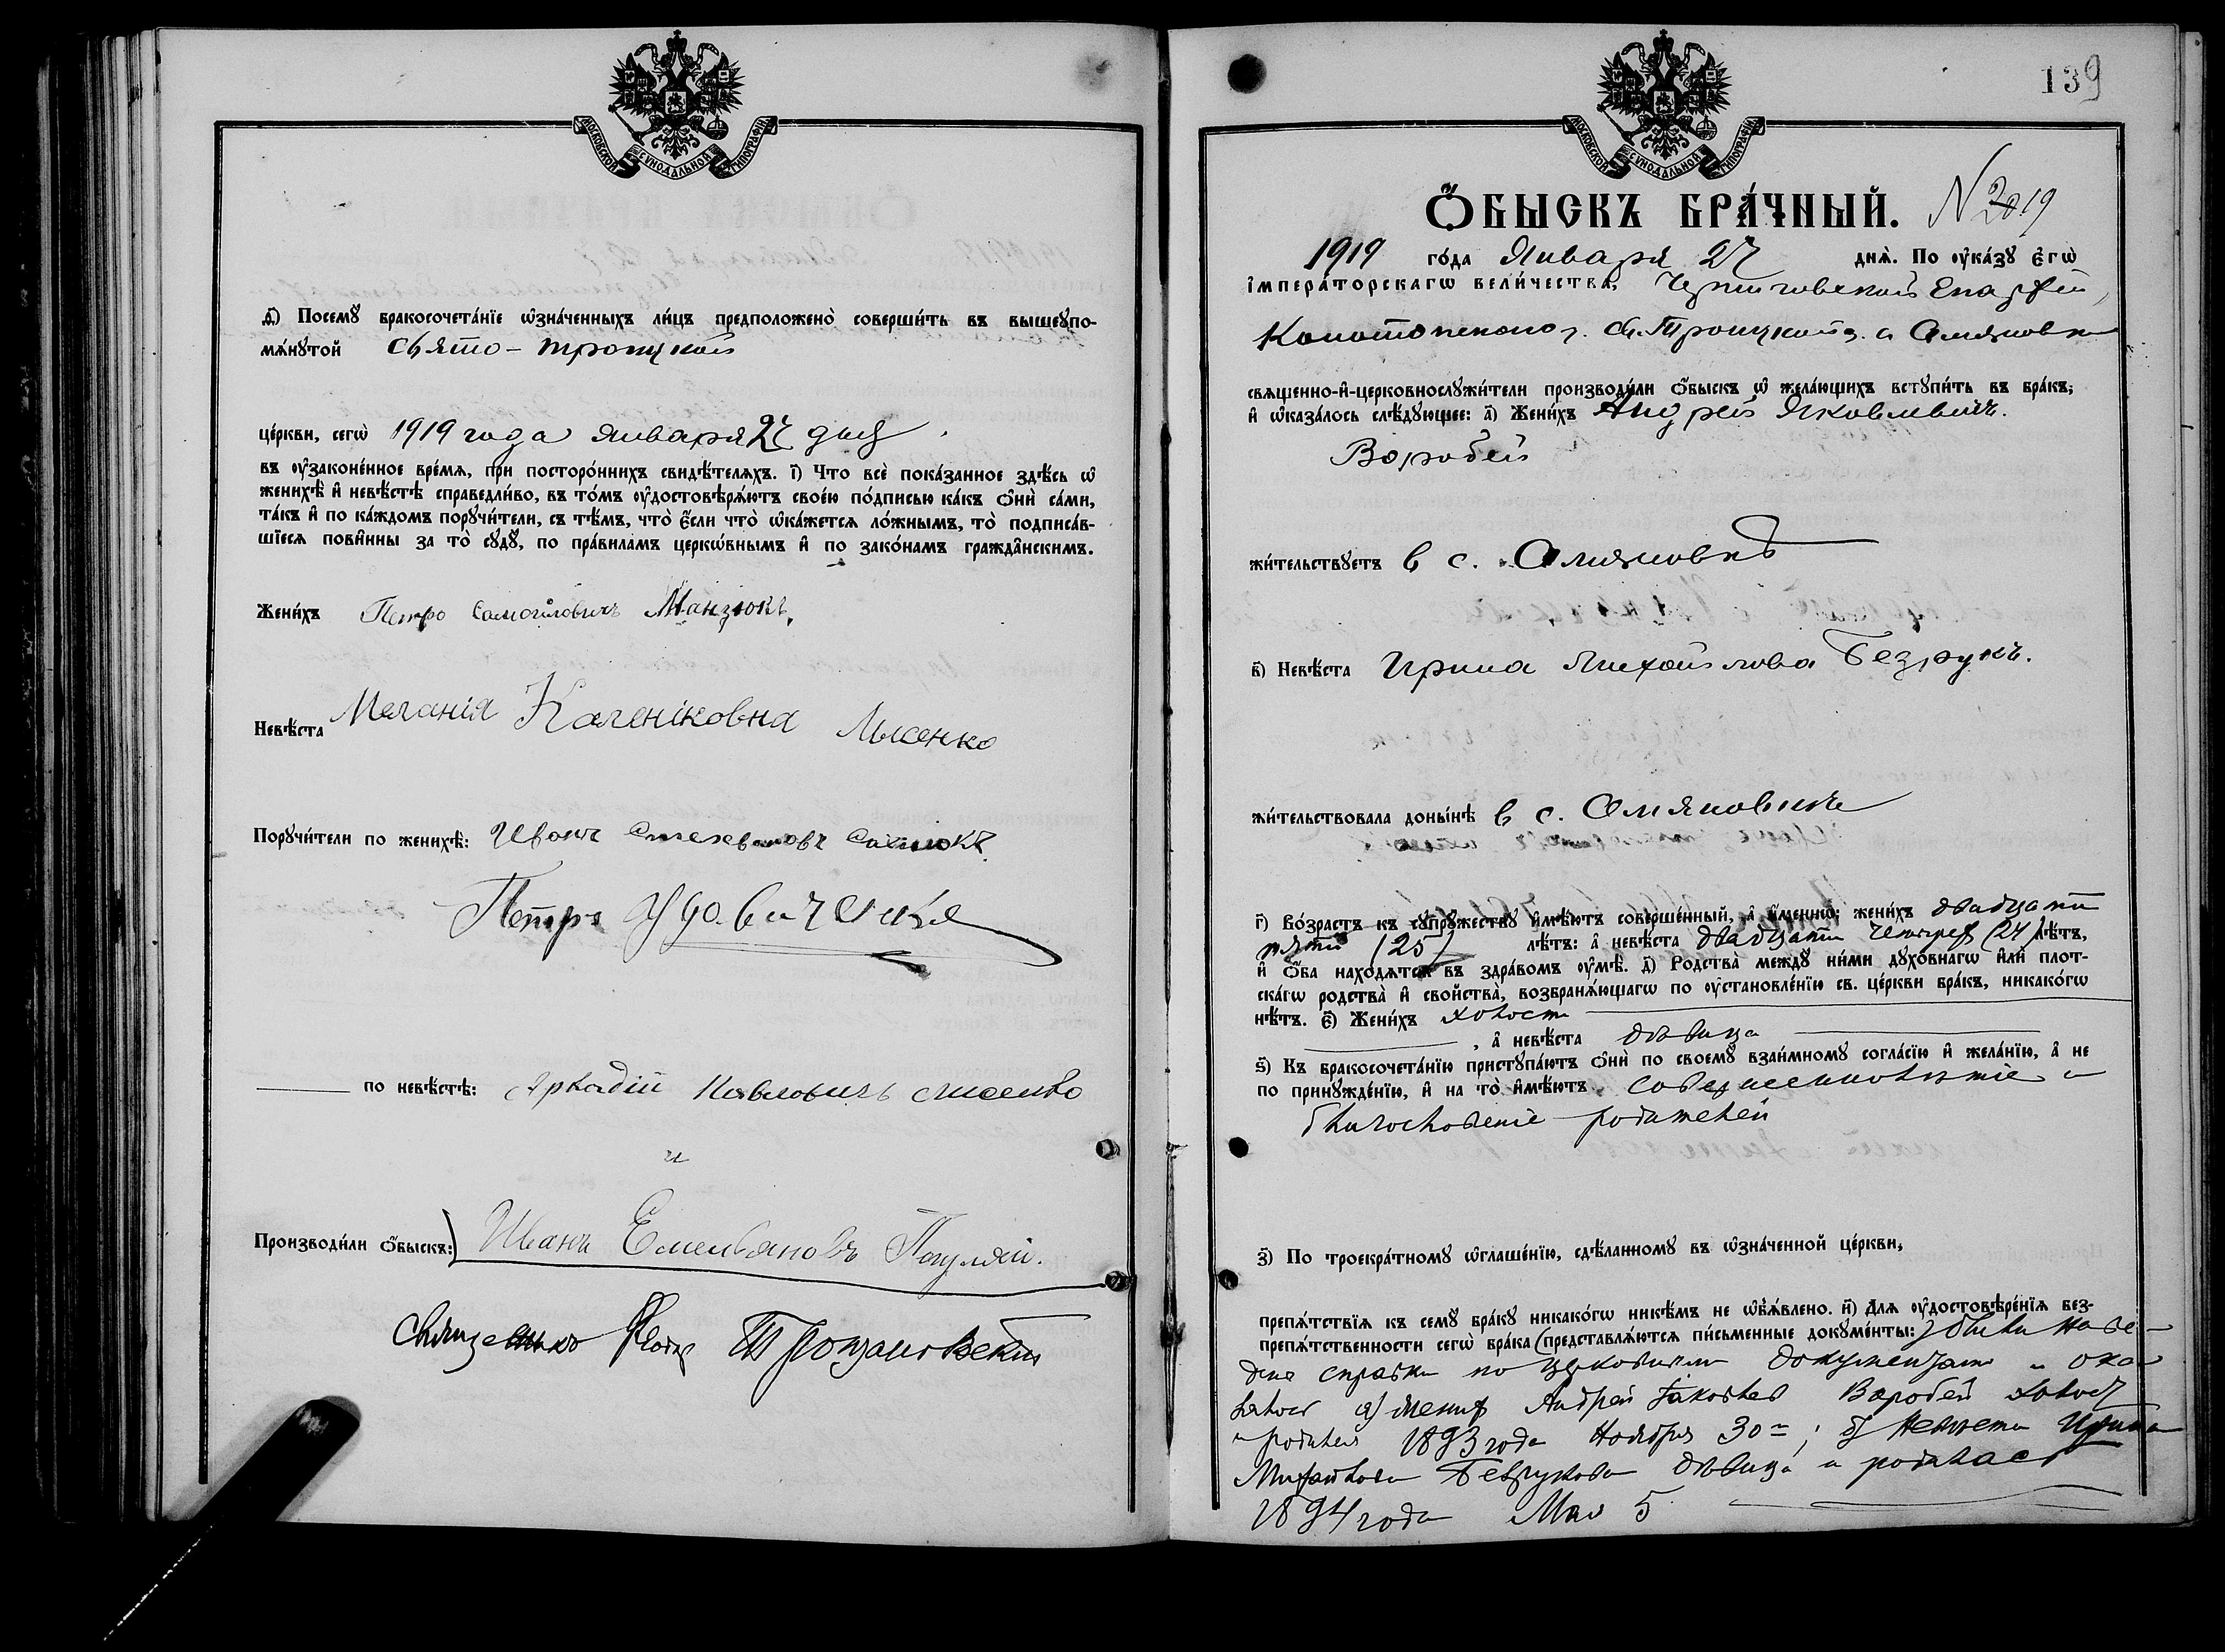 МОСКОВСКОЙ СѴНОДАЛЬНОЙ ТИПОГРАФІИ
д҃) Посемꙋ̀ бракосочета́нїе ѡзна́ченныхъ ли́цъ предположено̀ соверши́ть въ вышеꙋпо-
мѧ́нꙋтой Свято-Троицкой
це́ркви, сегѡ̀ 1919 года Января 27 дня
въ ᲂу҆законе́нное вре́мѧ, при посторо́ннихъ свидѣ́телѧхъ. і҃) Что всѐ пока́занное здѣ́сь ѡ҆
женихѣ̀ и҆ невѣ́стѣ справедли́во, въ то́мъ ᲂу҆достовѣрѧ́ютъ свое́ю по́дписью ка́къ ѻ҆нѝ са́ми,
та́къ и҆ по ка́ждомъ порꙋчи́тели, съ тѣ́мъ, что̀ є҆́сли что̀ ѡ҆ка́жетсѧ ло́жнымъ, то̀ подписа́в-
шїесѧ пови́нны за то̀ сꙋдꙋ̀, по пра́виламъ церко́внымъ и҆ по зако́намъ гражда́нскимъ.
Жени́хъ Петро Самойловичъ Манзюкъ,
Невѣ́ста Меланія Каленіковна Лысенко
Порꙋчи́тели по женихѣ̀: Иванъ Стехвановъ
Петръ Удовиченко
по невѣ́стѣ: Аркадій Павловичъ Лисенко
и
Производи́ли ѻ҆́быскъ: Иванъ Емельяновъ
Священникъ Троцановскій
139
МОСКОВСКОЙ СѴНОДАЛЬНОЙ ТИПОГРАФІИ
Ѻ҆́БЫСКЪ БРА́ЧНЫЙ. N 20 19
1919 го́да Января 27 днѧ̀. По ᲂу҆ка́зꙋ є҆гѡ̀
і҆мпера́торскагѡ вели́чества, Черниговской Епархіи,
Конотопскаго у. Св. Троицкой ц. с. Смяновки
свѧще́нно-и҆-церковнослꙋжи́тели производи́ли ѻ҆́быскъ ѡ҆ жела́ющихъ встꙋпи́ть въ бра́къ,
и҆ ѡ҆каза́лось слѣ́дꙋющее: а҃) Жени́хъ Андрей Яковлевичъ.
Воробей
жи́тельствꙋетъ в с.
в҃) Невѣ́ста Ирина Михайлова Безрукъ.
жи́тельствовала доны́нѣ в с.
г҃) Во́зрастъ къ сꙋпрꙋ́жествꙋ и҆мѣ́ютъ соверше́нный, а҆ и҆́менно: жени́хъ двадцати
пяти (25) лѣ́тъ: а҆ невѣ́ста двадцати четырех (24) лѣ́тъ,
и҆ ѻ҆́ба нахо́дѧтсѧ въ здра́вомъ ᲂу҆мѣ̀. д҃) Родства̀ междꙋ̀ ни́ми дꙋхо́внагѡ и҆лѝ плот-
ска́гѡ родства̀ и҆ сво́йства, возбранѧ́ющагѡ по ᲂу҆становле́нїю св. це́ркви бра́къ, никако́гѡ
нѣ́тъ. є҃) Жени́хъ холост
, а҆ невѣ́ста дѣвица
ѕ҃) Къ бракосочета́нїю пристꙋпа́ютъ ѻ҆нѝ по своемꙋ̀ взаи́мномꙋ согла́сїю и҆ жела́нїю, а҆ не
по принꙋжде́нїю, и҆ на то̀ и҆мѣ́ютъ совершеннолѣтіе и
благословеніе родителей
з҃) По троекра́тномꙋ ѡ҆глаше́нїю, сдѣ́ланномꙋ въ ѡ҆зна́ченной це́ркви,
препѧ́тствїѧ къ семꙋ̀ бра́кꙋ никако́гѡ никѣ́мъ не ѡ҆б̾ѧ́влено. и҃) Длѧ ᲂу҆достовѣре́нїѧ без-
препѧ́тственности сегѡ̀ бра́ка (представлѧ́ютсѧ пи́сьменные докꙋме́нты:) были наве-
дены справки по церковным документам и ока-
залось а) жених Андрей Іаковлев Воробей холост
и родился 1893 года Ноября 30 =; б) невеста Ирина
Михайлова Безрукова дѣвица и родилась
1894 года Мая 5